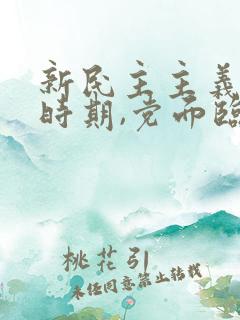 新民主主义
时期,党面临
桃花引
未经同意禁止转载